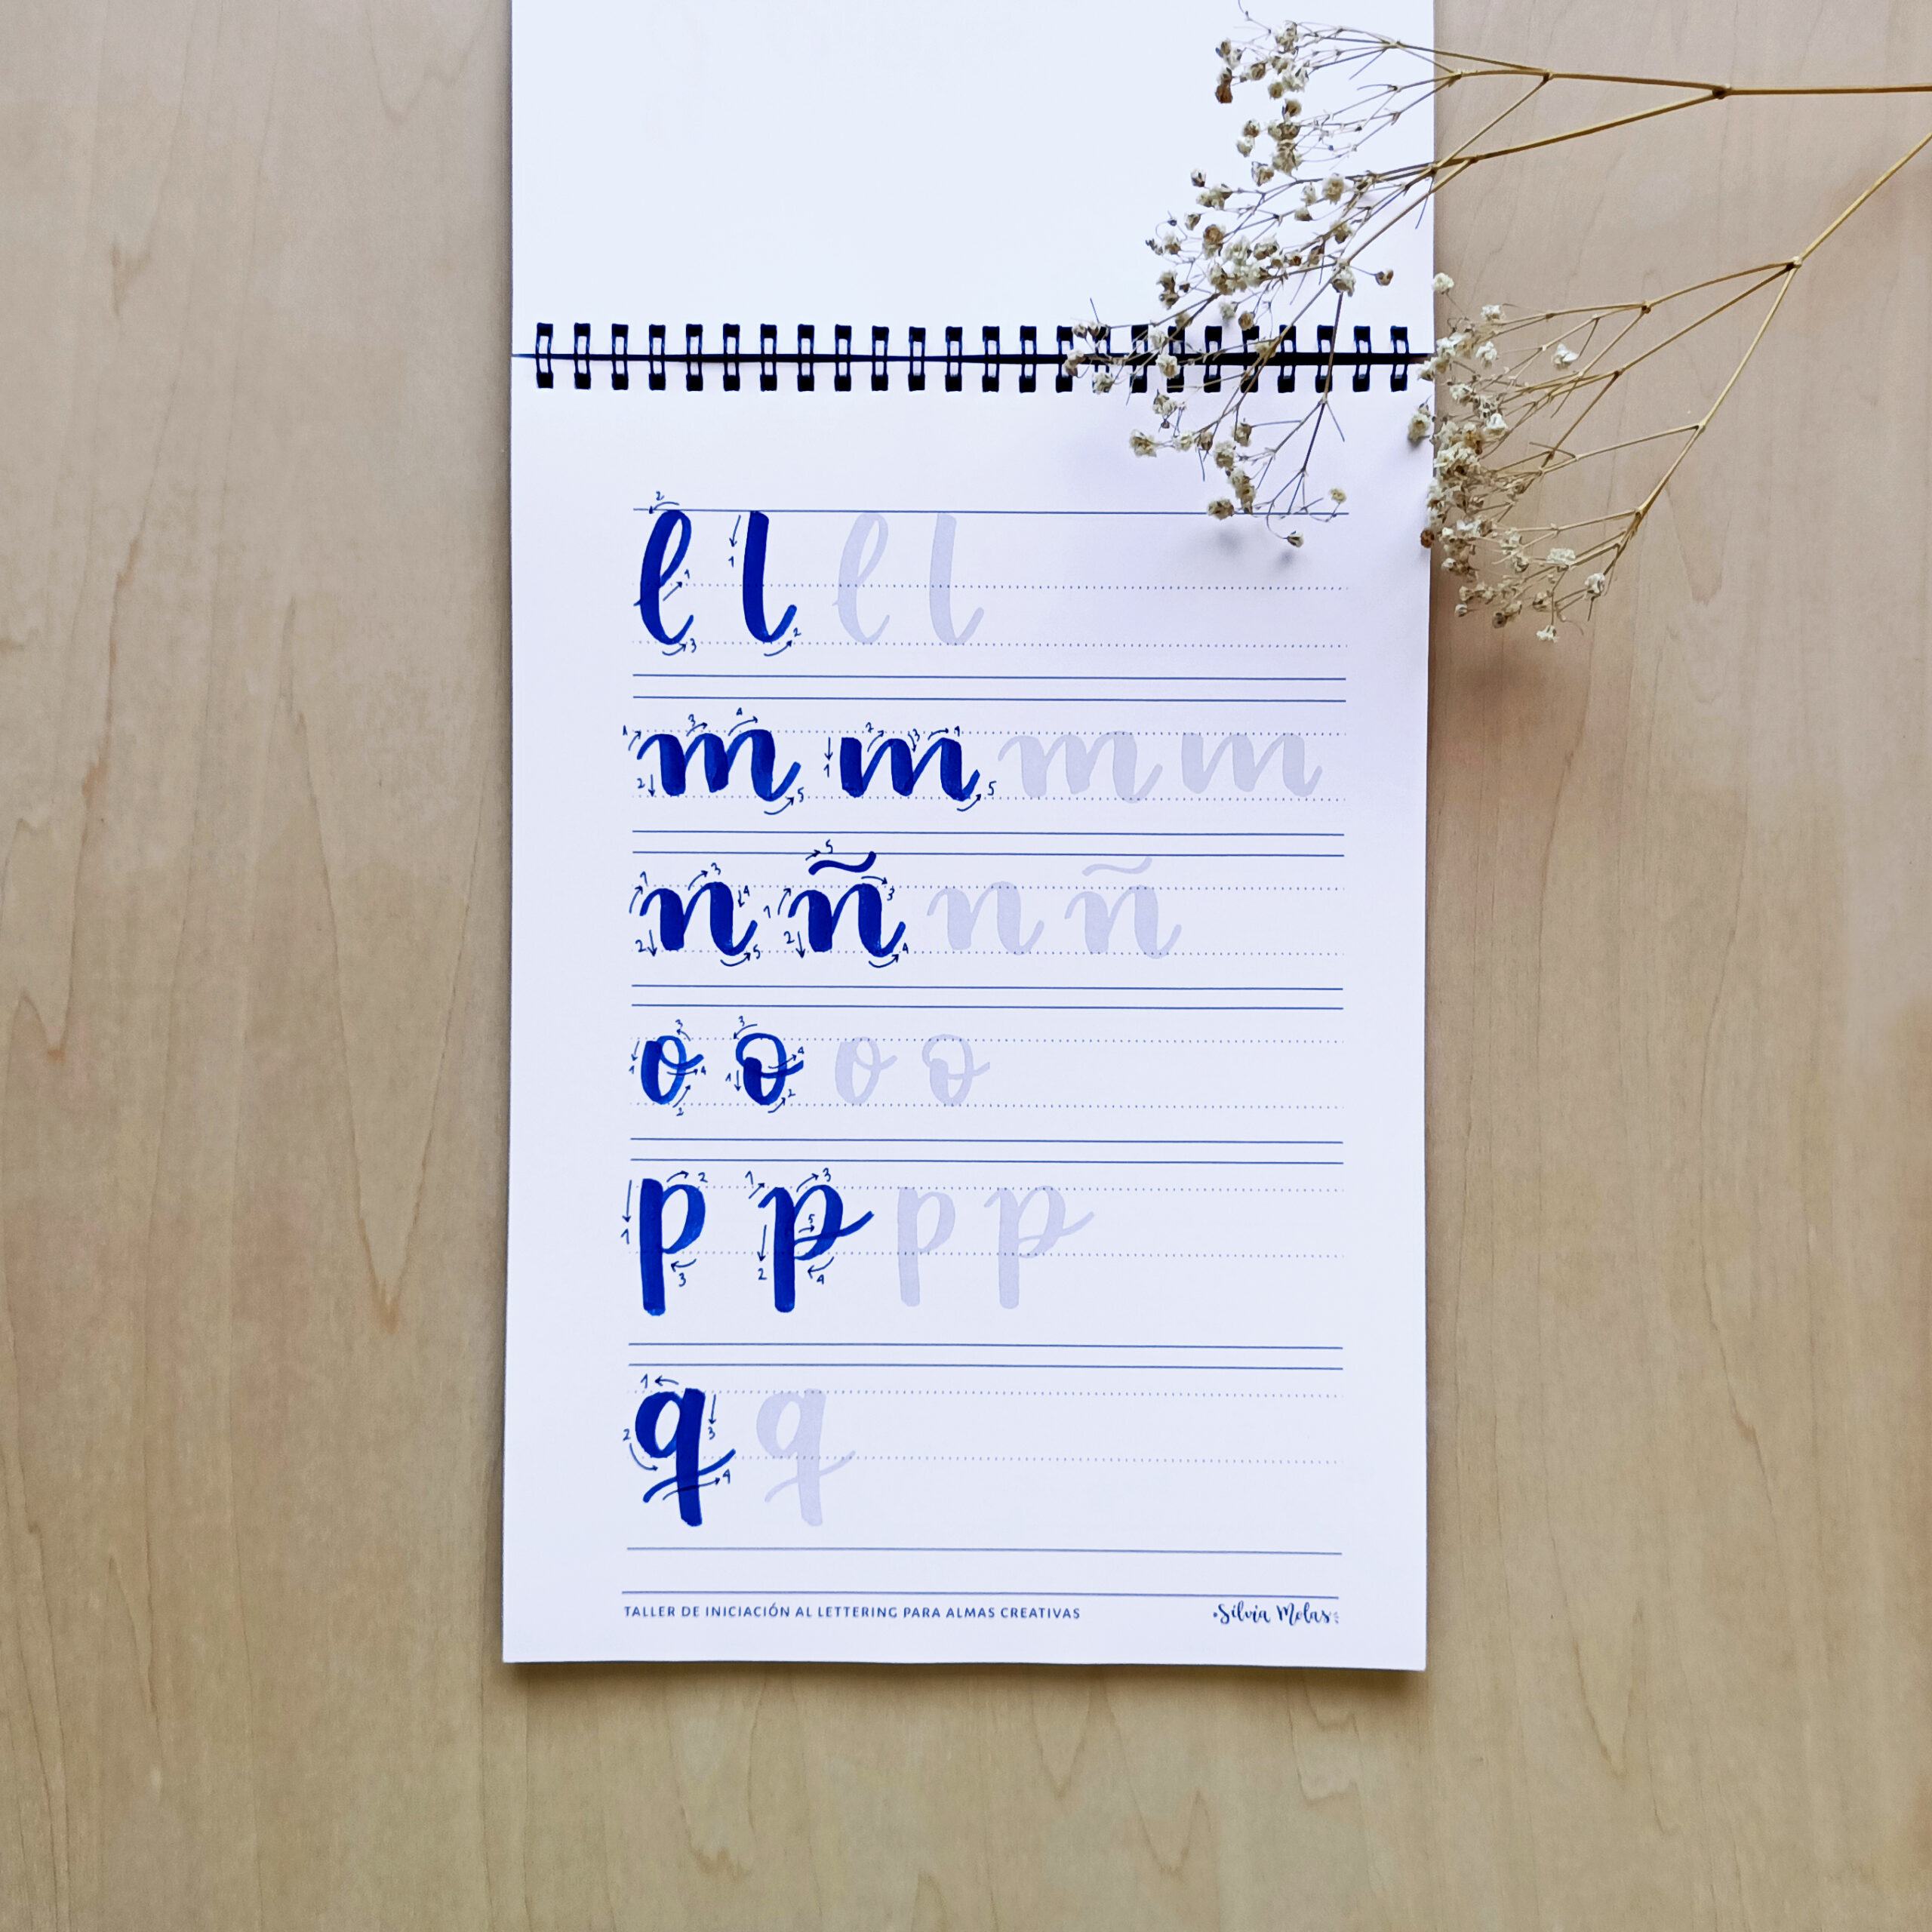 l l l l
m m m m
n ñ n ñ
o o o o
p p p p
q q
TALLER DE INICIACIÓN AL LETTERING PARA ALMAS CREATIVAS
Silvia Molas